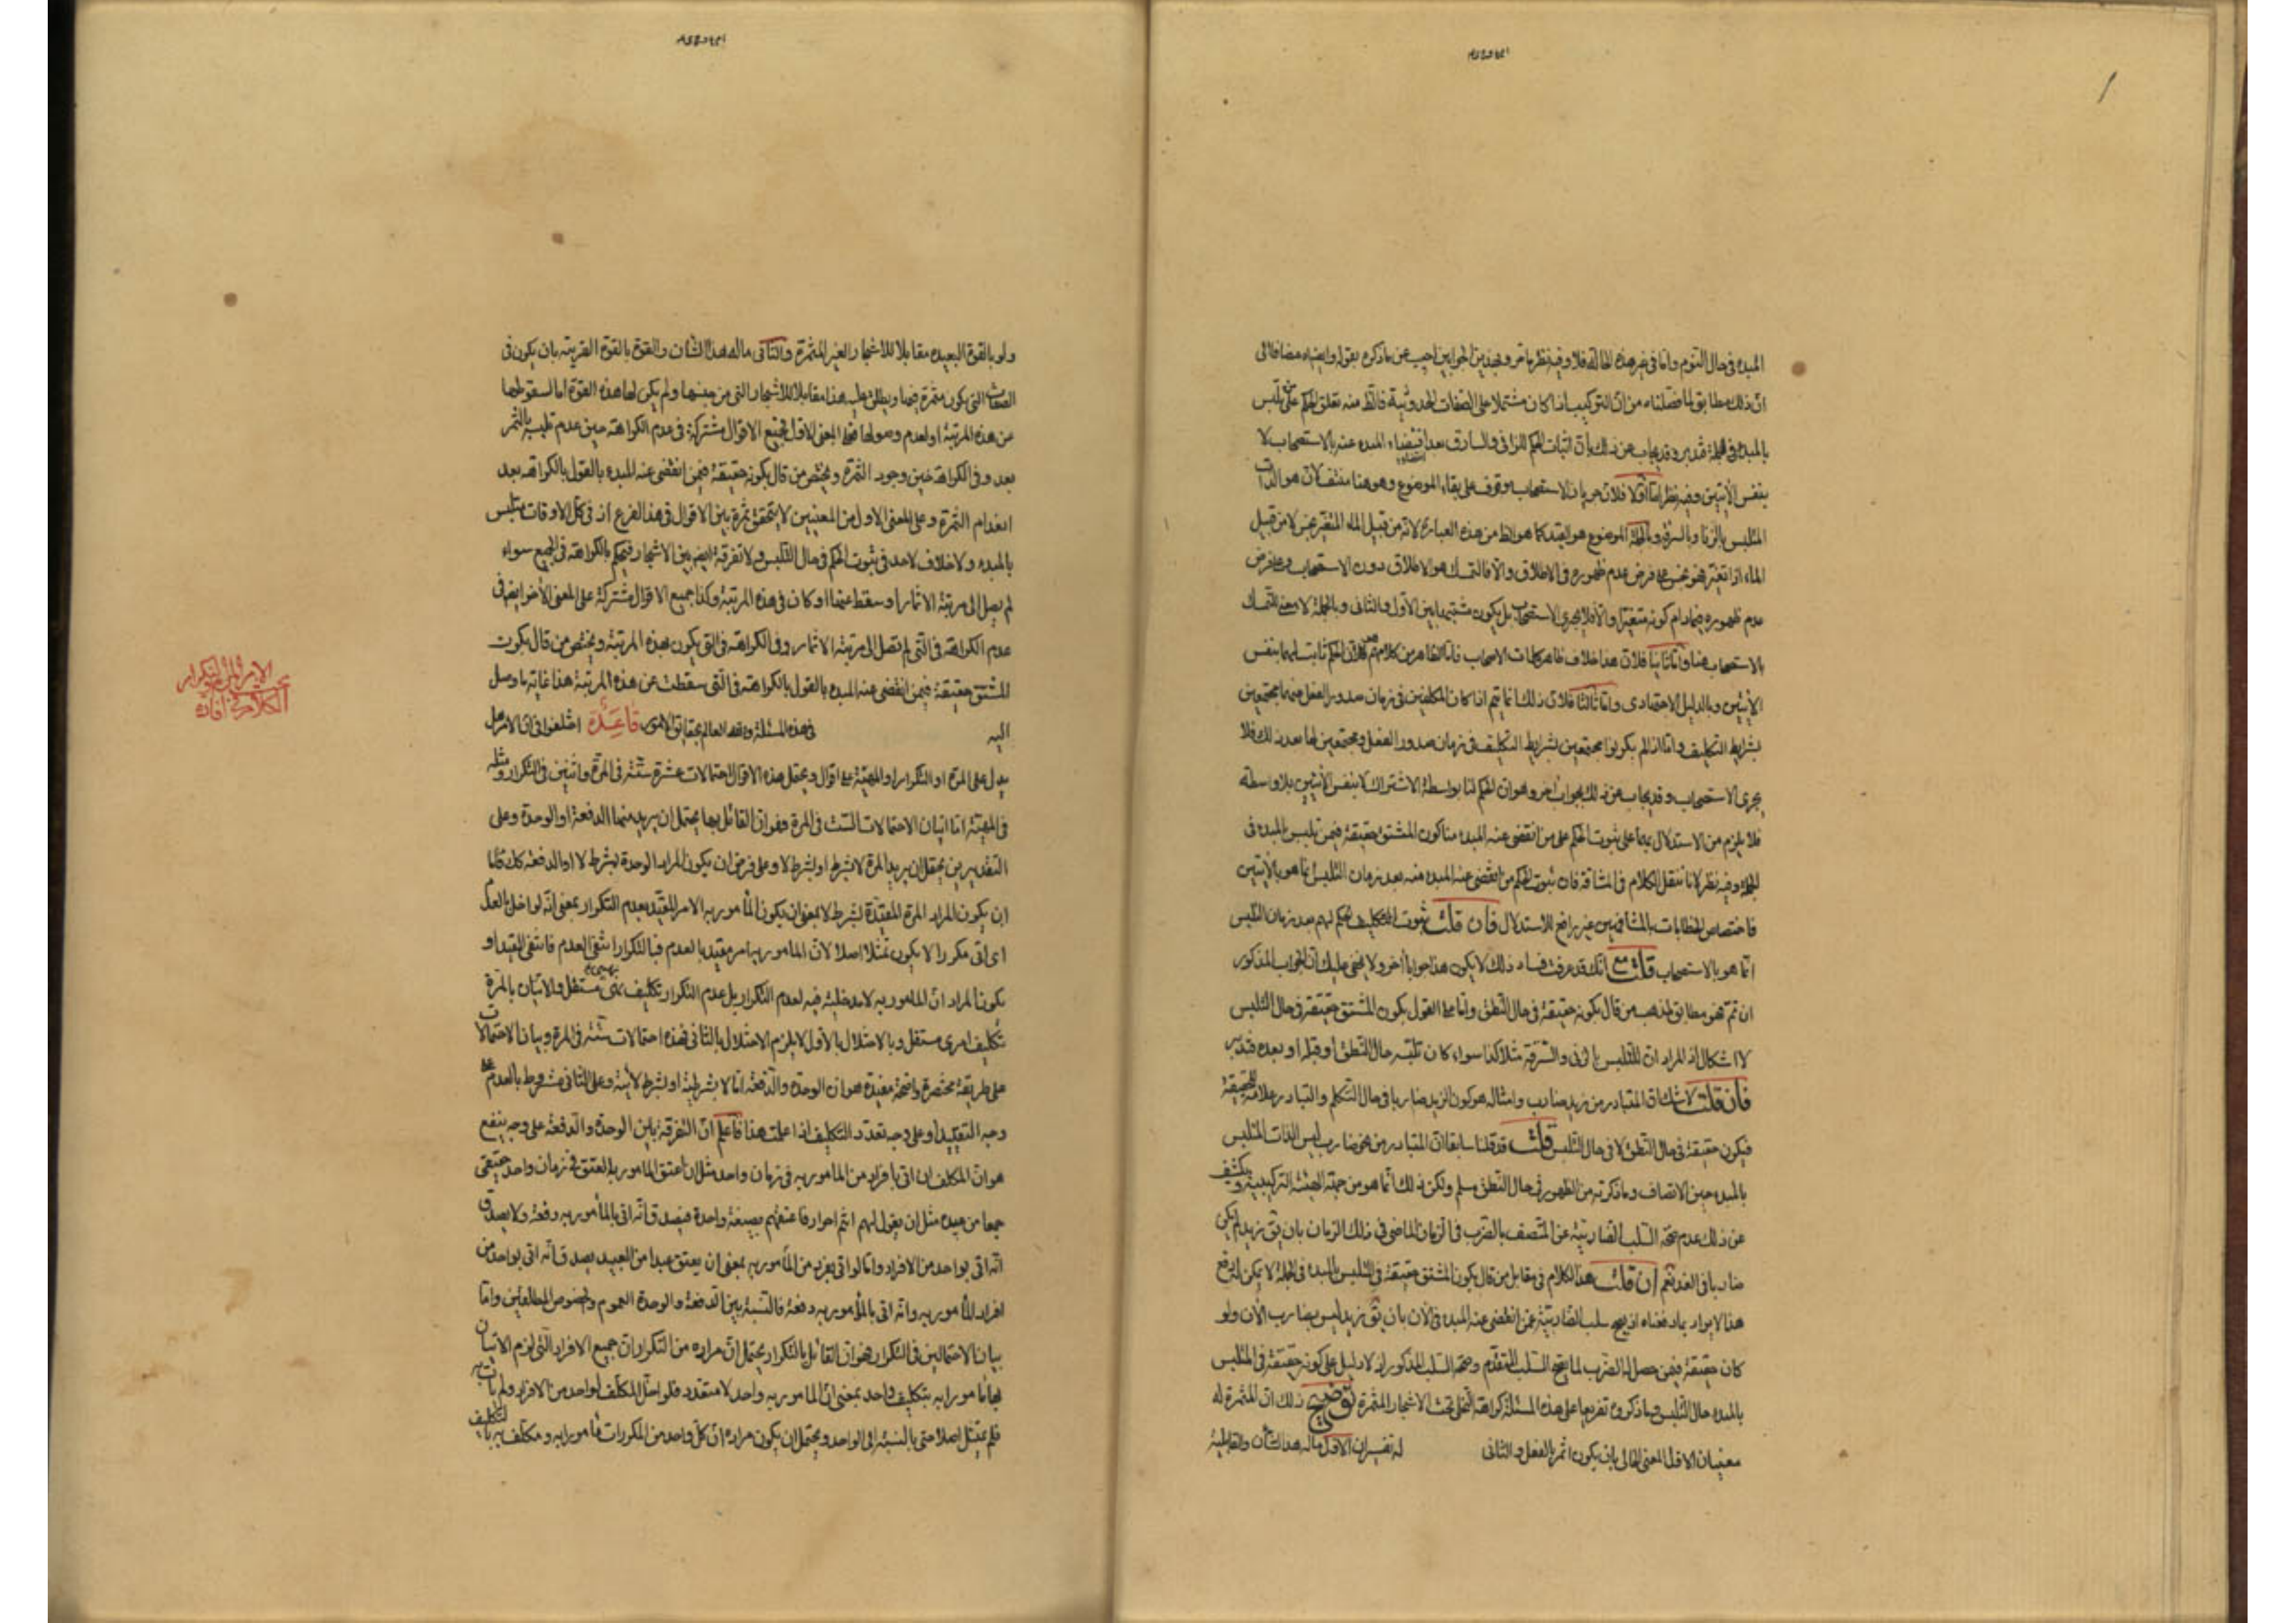 المبدء فى حال التلبس واما فى غير هذه الحالة فلا وفيه نظر مامر وبهذين الجوابين اجيب عن ماذكره بقوله وايضا مضافا الى
ان ذلك مطابق لما فصلناه من ان التركيب اذا كان مشتملا على الصفات الحدوثية فالظ منه تعلق الحكم على تلبس
بالمبدء فى الجملة فتدبر وقد يجاب عن ذلك بان اثبات الحكم للزانى والسارق بعد انقضاء المبدء عنه بالاستصحاب لا
بنفس الآيتين وفيه نظر اما اولا فلان جريان الاستصحاب موقوف على بقاء الموضوع وهو هنا منتف لان هو الذات
المتلبس بالزنا وبالسرقة وبالجملة الموضوع هو المقيد كما هو الظ من هذه العبارة لانه من قبيل الماء المتغير نجس لا من قبيل
الماء اذا تغير فهو نجس على فرض عدم ظهوره فى الاطلاق والا فالتمسك هو الاطلاق دون الاستصحاب وعلى فرض
عدم ظهوره فيما دام كونه متغيرا والا فلا يجرى الاستصحاب بل يكون مشتبها بين الاول والثانى وبالجملة لا معنى للتمسك
بالاستصحاب هنا واما ثانيا فلان هذا خلاف ظاهر كلمات الاصحاب فان الظاهر من كلامهم ان الحكم ثابت لهما بنفس
الآيتين وبالدليل الاجتهادى واما ثالثا فلان ذلك انما يتم اذا كان المكلفين فى زمان صدور الفعل منهما مجتمعين
بشرايط التكليف واما اذا لم يكونوا مجتمعين بشرايط التكليف فى زمان صدور الفعل ومجتمعين لها بعد ذلك فلا
يجرى الاستصحاب وقد يجاب عن ذلك بجواب آخر وهو ان الحكم لنا بواسطة الاشتراك لا بنفس الآيتين بلا واسطة
فلا يلزم من الاستدلال بهما على ثبوت الحكم على من انقضى عنه المبدء منا كون المشتق حقيقة فيمن تلبس بالمبدء فى
الجملة وفيه نظر لانا ننقل الكلام فى المشافه فان ثبوت الحكم من انقضى عنه المبدء منه بعد زمان التلبس انما هو بالآيتين
فاختصاص الخطابات بالمشافهين غير رافع للاستدلال فان قلت ثبوت الحكم لهم بعد زمان التلبس
انما هو بالاستصحاب قلت مع انك قد عرفت فساد ذلك لا يكون هذا جوابا آخر ولا يخفى عليك ان الجواب المذكور
ان تم فهو مطابق لمذهب من قال بكونه حقيقة فى حال النطق واما على القول بكون المشتق حقيقة فى حال التلبس
لا اشكال اذ المراد ان المتلبس بالزنى والسرقة مثلا كذا سواء كان تلبسه حال النطق او قبله او بعده فتدبر
فان قلت لا شك ان المتبادر من زيد ضارب وامثاله هو كون الزيد ضاربا فى حال التكلم والتبادر علامة الحقيقة
فيكون حقيقة فى حال النطق لا فى حال التلبس قلت قد قلنا سابقا ان المتبادر من نحو ضارب ليس الذات المتلبس
بالمبدء حين الاتصاف وما ذكرته من الظهور فى حال النطق مسلم ولكن ذلك انما هو من جهة الهيئة التركيبية ويكشف
عن ذلك عدم صحة السلب الضاربية عن المتصف بالضرب فى الزمان الماضى فى ذلك الزمان بان يق زيد لم يكن
ضاربا فى الغد نعم ان قلت هذا الكلام فى مقابل من قال بكون المشتق حقيقة فى المتلبس بالمبدء فى الجملة لا يمكن له رفع
هذا الايراد بما دفعناه اذ يصح سلب الضاربية عمن انقضى عنه المبدء فى الآن بان يق زيد ليس بضارب الآن ولو
كان حقيقة فيمن حصل له الضرب لما يصح السلب المتقدم وصحة السلب المذكور اذ لا دليل على كونه حقيقة فى المتلبس
بالمبدء حال التلبس وما ذكروه تفريعا على هذه المسئلة كراهة التخلى تحت الاشجار المثمرة توضيح ذلك ان المثمرة له
معنيان الاول المعنى الحالى بان يكون اثمر بالفعل والثانى له تفسيران الاول ماله هذا الشأن والقابلية
ولو بالقوة البعيده مقابلا للاشجار الغير المثمرة والثانى ماله هذا الشأن والقوة بالقوة القريبة بان يكون فى
الصفات التى يكون مثمرة فيها ويطلق عليه هذا مقابلا للاشجار التى من جنسها ولم يكن لها هذه القوة اما لسقوطها
عن هذه المرتبة او لعدم وصولها فعلى المعنى الاول جميع الاقوال مشتركة فى عدم الكراهة حين عدم تلبسه بالثمر
بعد وفى الكراهة حين وجود الثمرة ويختص من قال بكونه حقيقة فيمن انقضى عنه المبدء بالقول بالكراهة بعد
انعدام الثمرة وعلى المعنى الاول من المعنيين لا يتحقق ثمرة بين الاقوال فى هذا الفرع اذ فى كل الاوقات متلبس
بالمبدء ولا خلاف لاحد فى ثبوت الحكم فى حال التلبس ولا تفرقة ايضا بين الاشجار فيحكم بالكراهة فى الجميع سواء
لم يصل الى مرتبة الاثمار او سقط عنها او كان فى هذه المرتبة وكذا جميع الاقوال مشتركة على المعنى الاخر ايضا فى
عدم الكراهة فى التى لم تصل الى مرتبة الاثمار وفى الكراهة فى التى يكون بهذه المرتبة ويختص من قال بكون
المشتق حقيقة فيمن انقضى عنه المبدء بالقول بالكراهة فى التى سقطت عن هذه المرتبة هذا غاية ما وصل
اليه فى هذه المسئلة والله العالم بحقايق الامور قاعدة اختلفوا فى ان الامر هل
يدل على المرة او التكرار او المهية على اقوال ويحتمل هذه الاقوال احتمالات عشرة ستة فى المرة واثنين فى التكرار ومثله
فى المهية اما بيان الاحتمالات الست فى المرة فهو ان القائل بها يحتمل ان يريد منها الدفعة او الوحدة وعلى
التقديرين يحتمل ان يريد المرة لا بشرط او بشرط لا وعلى فرض ان يكون المراد الوحدة بشرط لا او الدفعة كك فاما
ان يكون المراد المرة المقيدة بشرط لا بمعنى ان يكون المأمور به الامر المقيد بعدم التكرار بمعنى انه لو اخل بالعدم
اى اتى مكررا لا يكون ممتثلا اصلا لان المأمور به امر مقيد بالعدم فبالتكرار انتفى العدم فانتفى المقيد او
يكون المراد ان المأمور به لا مدخلية فيه لعدم التكرار بل عدم التكرار تكليف نهيى مستقل والاتيان بالمرة
تكليف امرى مستقل وبالاختلال بالاول لا يلزم الاختلال بالثانى فهذه احتمالات ستة فى المرة وبيان الاحتمالات
على طريقة مختصرة واضحة مفيدة هو ان الوحدة والدفعة اما لا بشرطية او بشرط لائية وعلى الثانى مشروط بالعدم على
وجه التقييد او على وجه تعدد التكليف اذا علمت هذا فاعلم ان التفرقة بين الوحدة والدفعة على وجه ينفع
هو ان المكلف ان اتى بافراد من المأمور به فى زمان واحد مثل ان اعتق المأمور بالعتق فى زمان واحد حقيقى
جمعا من عبيده مثل ان يقول لهم انتم احرار فاعتقهم بصيغة واحدة فيصدق انه اتى بالمأمور به دفعة ولا يصدق
انه اتى بواحد من الافراد واما لو اتى بفرد من المأمور به بمعنى ان يعتق عبدا من العبيد يصدق انه اتى بواحد من
افراد المأمور به وانه اتى بالمأمور به دفعة فالنسبة بين الدفعة والوحدة العموم والخصوص المطلقين واما
بيان الاحتمالين فى التكرار فهو ان القائل بالتكرار يحتمل ان مراده من التكرار ان جميع الافراد التى لزم الاتيان
بها مأمورا به بتكليف واحد بمعنى ان المأمور به واحد لا متعدد فلو اخل المكلف لواحد من الافراد ولم يات به
فلم يمتثل اصلا حتى بالنسبة الى الواحد ويحتمل ان يكون مراده ان كل واحد من المكررات مأمورا به ومكلف به بالتكليف
الكلام فى افادة
الامر المرة والتكرار